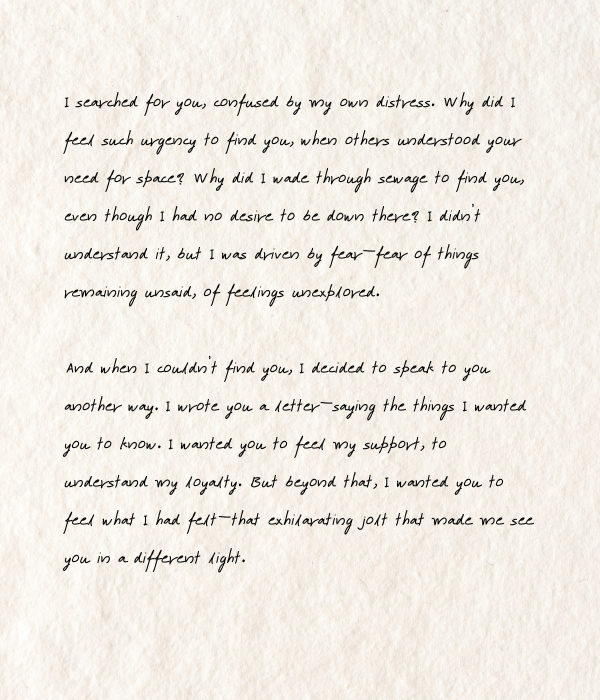 I searched for you, confused by my own distress. Why did I
feel such urgency to find you, when others understood your
need for space? Why did I wade through sewage to find you,
even though I had no desire to be down there? I didn't
understand it, but I was driven by fear—fear of things
remaining unsaid, of feelings unexplored.

And when I couldn't find you, I decided to speak to you
another way. I wrote you a letter—saying the things I wanted
you to know. I wanted you to feel my support, to
understand my loyalty. But beyond that, I wanted you to
feel what I had felt—that exhilarating jolt that made me see
you in a different light.